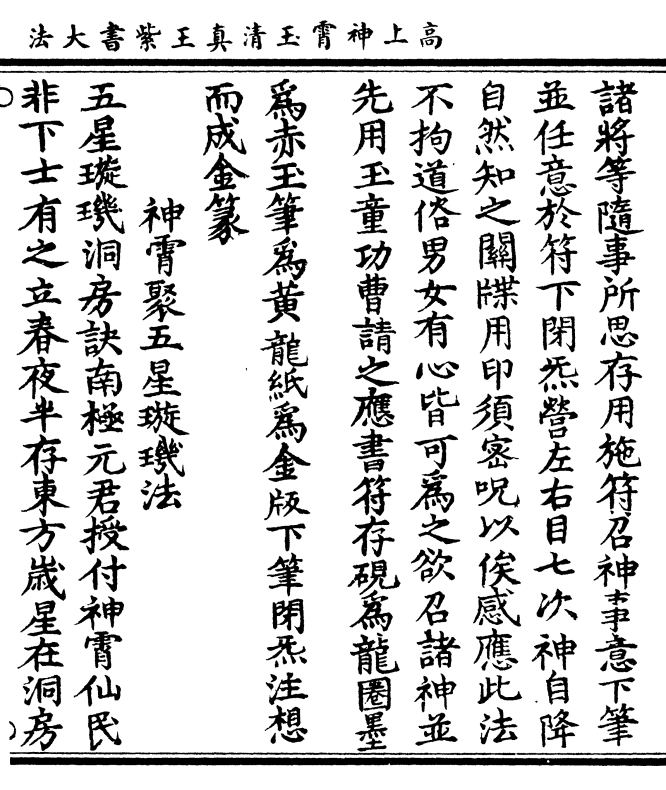 高上神霄玉清真王紫書大法
諸將等隨事所思存用施符召神事意下筆
並任意於符下閉炁營左右目七次神自降
自然知之關牒用印須密呪以俟感應此法
不拘道俗男女有心皆可爲之欲召諸神並
先用玉童功曹請之應書符存硯爲龍圈墨
爲赤玉筆爲黃龍紙爲金版下筆閉炁注想
而成金篆
神霄聚五星璇璣法
五星璇璣洞房訣南極元君授付神霄仙民
非下士有之立春夜半存東方歲星在洞房